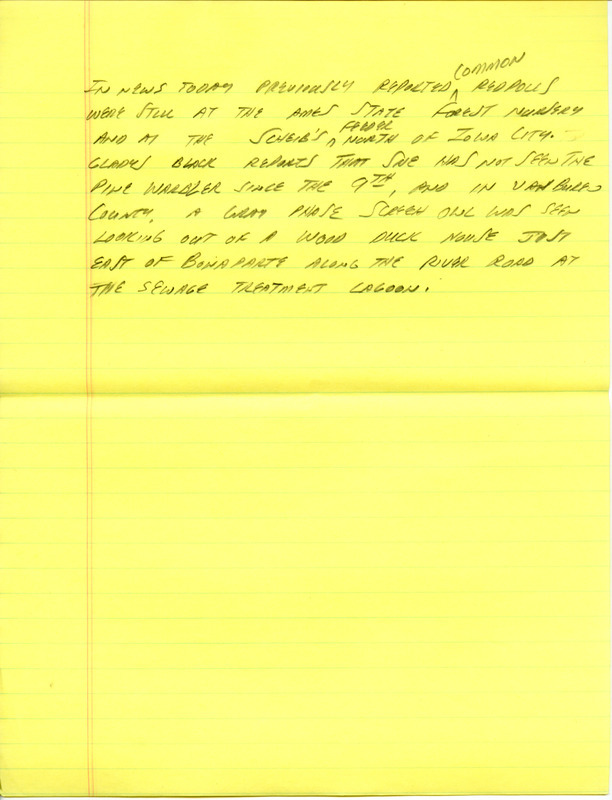 IN NEWS TODAY PREVIOUSLY REPORTED COMMON REDPOLLS
WERE STILL AT THE AMES STATE FOREST NURSERY
AND AT THE SCHEIB'S FEEDER NORTH OF IOWA CITY.
GLADYS BLACK REPORTS THAT SHE HAS NOT SEEN THE
PINE WARBLER SINCE THE 9TH, AND IN VAN BUREN
COUNTY, A GRAY PHASE SCREECH OWL WAS SEEN
LOOKING OUT OF A WOOD DUCK HOUSE JUST
EAST OF BONAPARTE ALONG THE RIVER ROAD AT
THE SEWAGE TREATMENT LAGOON.